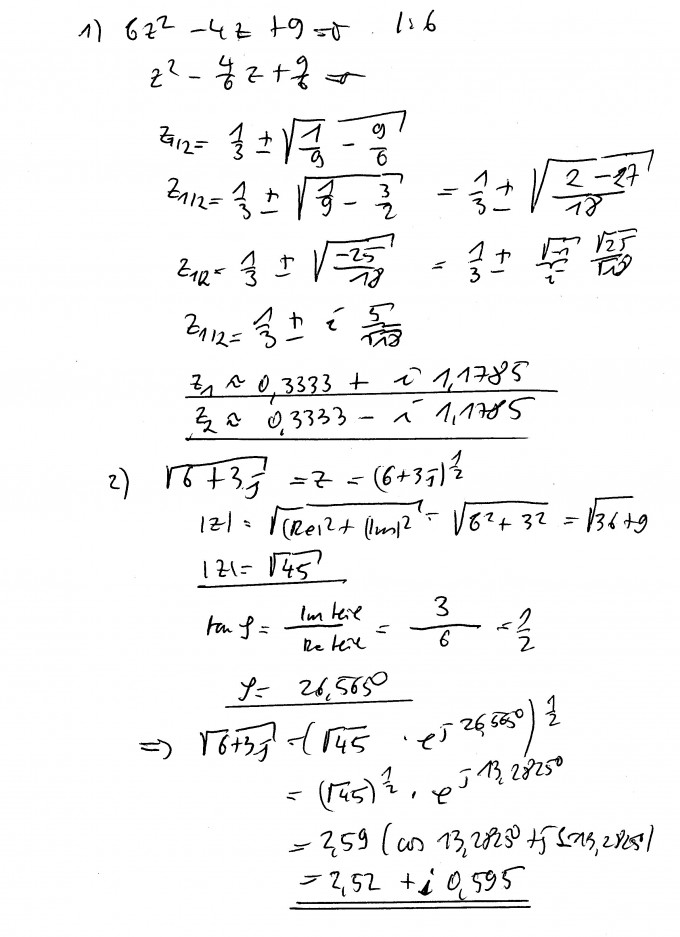 1) 6z² - 4z + 9 = 0  |:6
z² - 4/6 z + 9/6 = 0
z1/2 = 1/3 ± √(1/9 - 9/6)
z1/2 = 1/3 ± √(1/9 - 3/2) = 1/3 ± √((2-27)/18)
z1/2 = 1/3 ± √(-25/18) = 1/3 ± √-1/i √25/√18
z1/2 = 1/3 ± i 5/√18
z1 ≈ 0,3333 + i 1,1785
z2 ≈ 0,3333 - i 1,1785
2) √(6+3j) = z = (6+3j)^(1/2)
|z| = √((Re)² + (Im)²) = √(6² + 3²) = √(36+9)
|z| = √45
tan φ = Im teil / Re teil = 3/6 = 1/2
φ = 26,565°
=> √(6+3j) = (√45 · e^(j 26,565°))^(1/2)
= (√45)^(1/2) · e^(j 13,2825°)
= 2,59 (cos 13,2825° + j S 13,2825)
= 2,52 + i 0,595